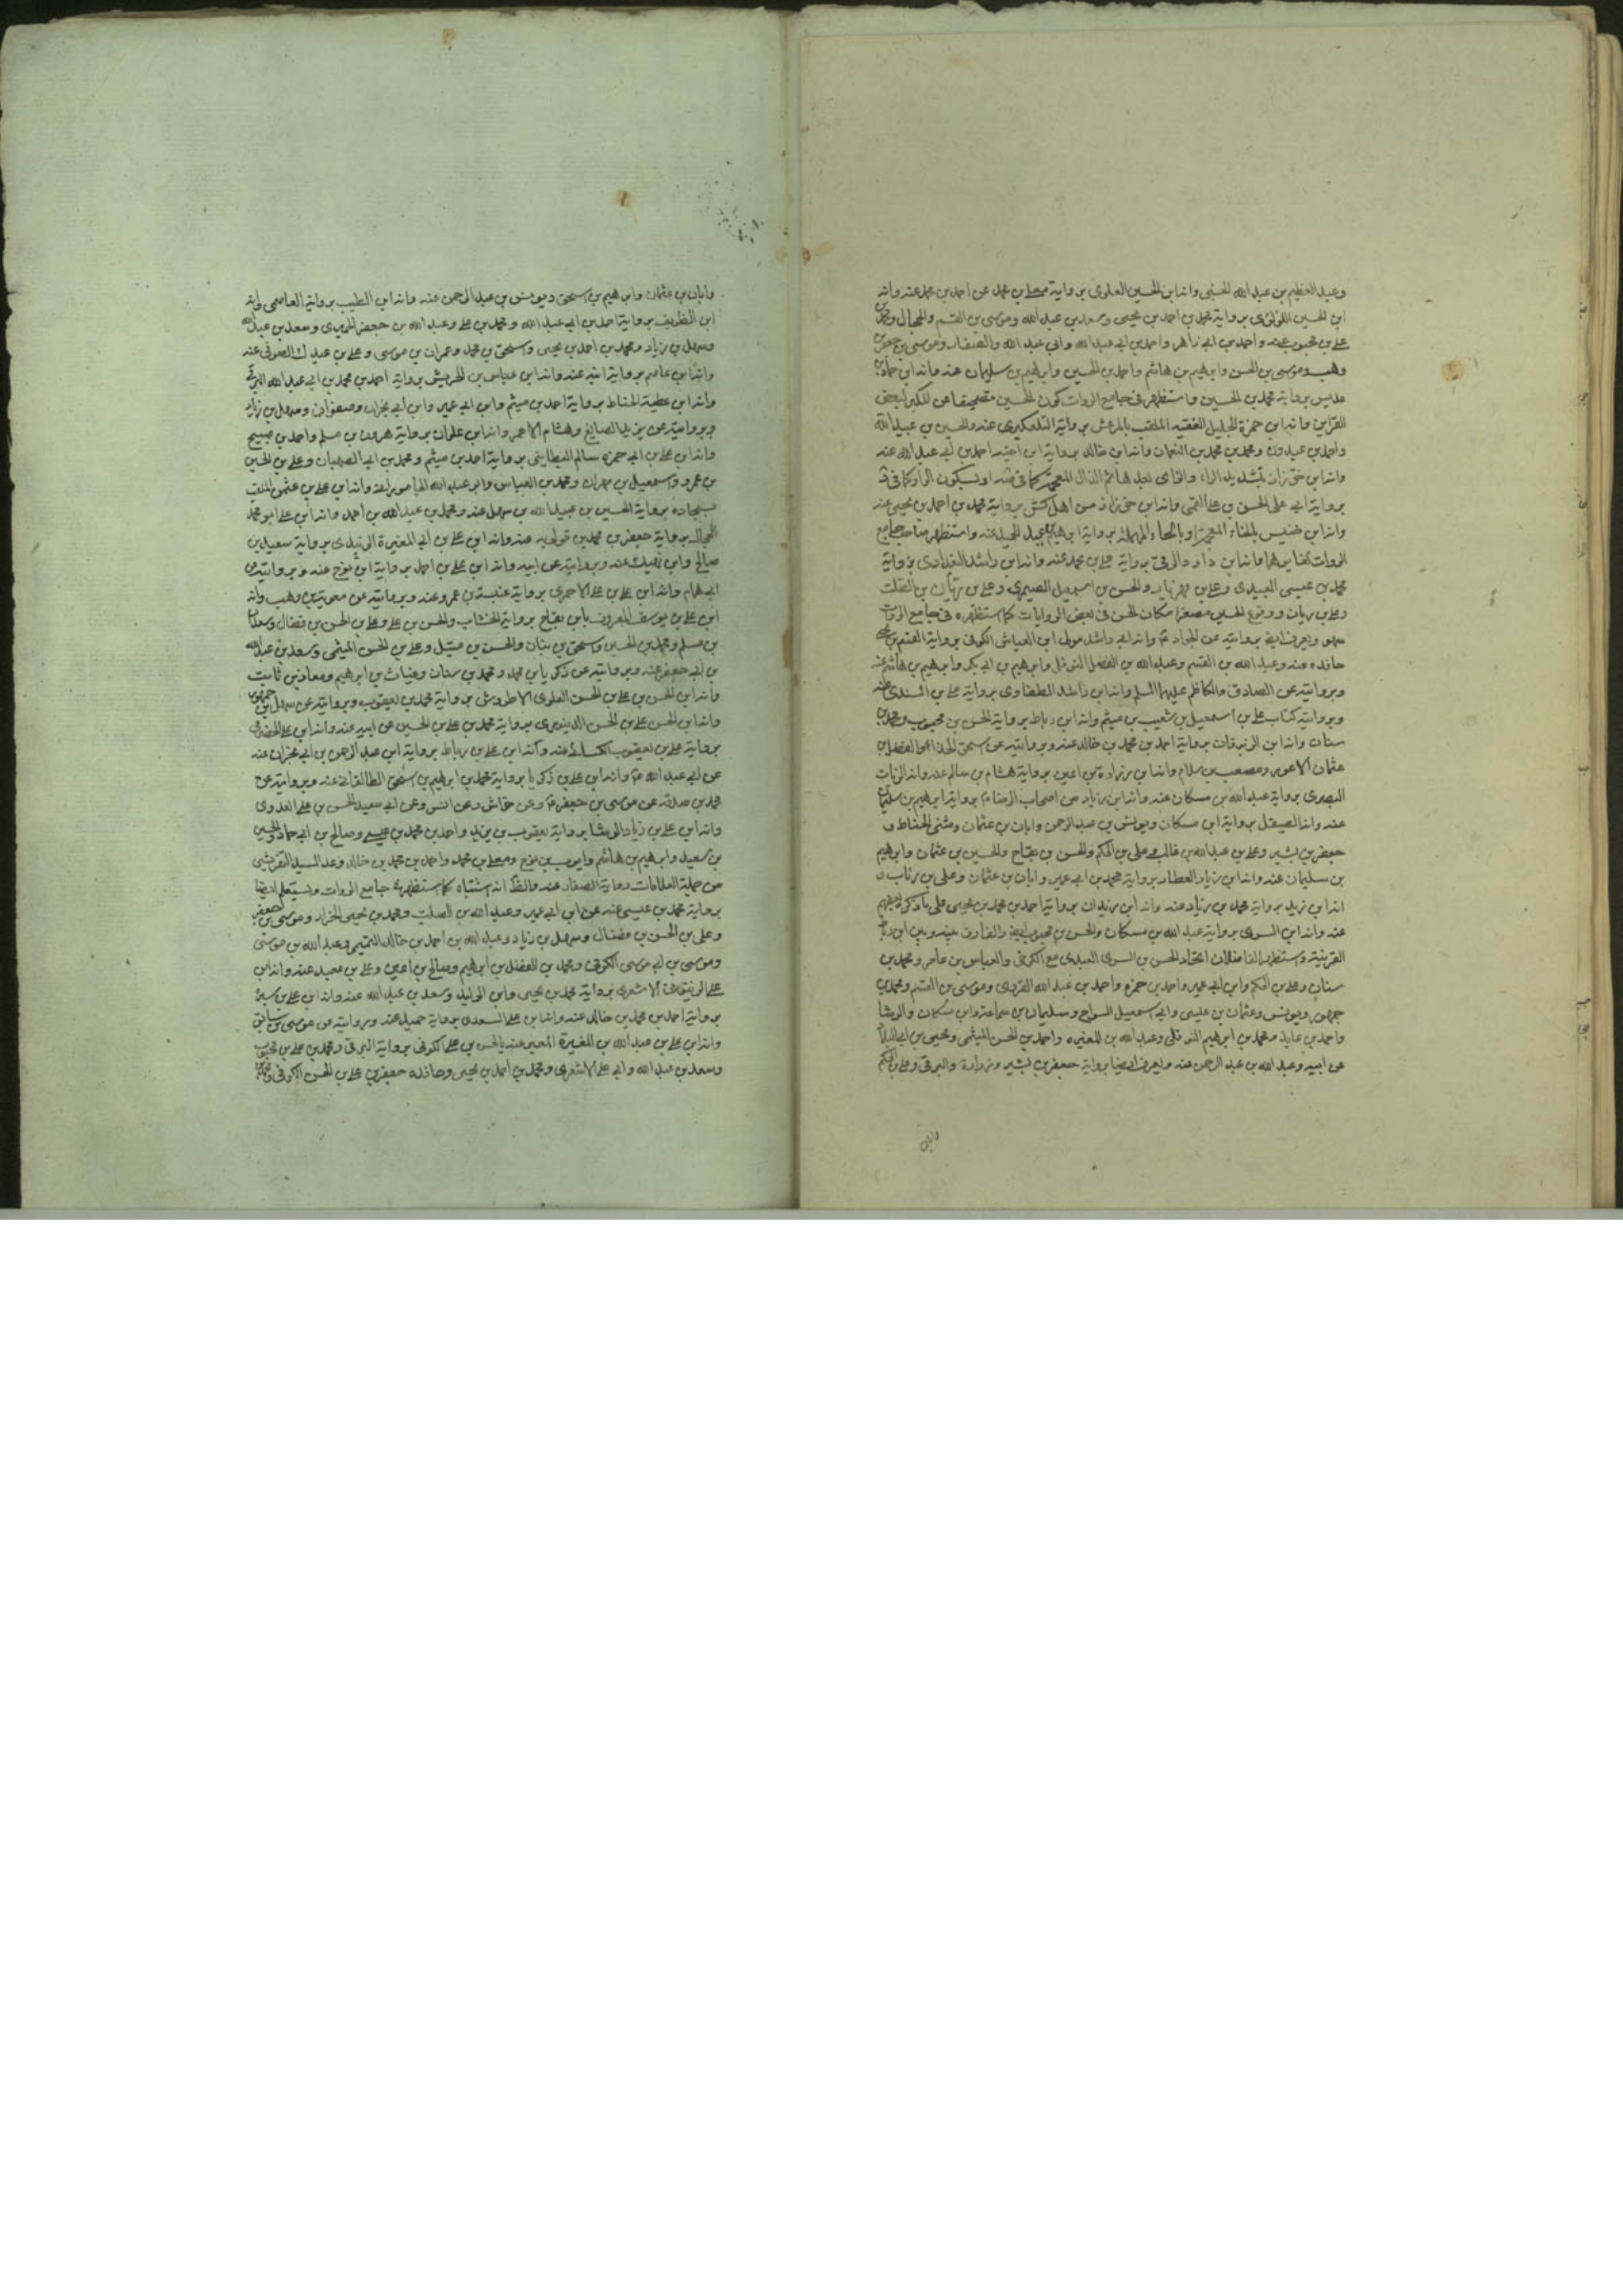 وعبد العظيم بن عبد الله الحسنى وانه ابن الحسين العلوى برواية معلى بن محمد عن احمد بن محمد عنه وانه
ابن الحسين اللؤلؤى برواية محمد بن احمد بن يحيى وسعد بن عبد الله وموسى بن القسم والجمال ومحمد بن
على بن محبوب عنه واحمد بن ابى زاهر واحمد بن ابى عبد الله وابى عبد الله والصفار وموسى بن جعفر بن
وهب وموسى بن الحسن وابرهيم بن هاشم واحمد بن الحسين وابرهيم بن سليمان عنه وانه ابن حماد بن
عديس برواية محمد بن الحسين واستظهر فى جامع الروات كون الحسين مصحفا عن المكبر لبعض
القراين وانه ابن حمزة الجليل الفقيه الملقب بالمرعش برواية التلعكبرى عنه والحسين بن عبيد الله
واحمد بن عبدون ومحمد بن محمد بن النعمان وانه ابن خالد برواية ابن اخيه احمد بن ابى عبد الله عنه
وانه ابن خرزاد بتشديد الراء والزاى بعدها ثم الذال المعجمة كما فى
برواية ابى على الحسن بن على القمى وانه ابن خرزاذ من اهل كش برواية محمد بن احمد بن يحيى عنه
وانه ابن خنيس بالخاء المعجمة او بالحاء المهملة برواية ابرهيم بن عبد الحميد عنه واستظهر صاحب جامع
الروات وانه ابن داود الرقى برواية على بن محمد عنه وانه ابن راشد البغدادى برواية
محمد بن عيسى العبيدى وعلى بن مهزيار والحسن بن اسمعيل الصيمرى وعلى بن ريان بن الصلت
وعلى بن ريان ووقوع الحسين مصغرا مكان الحسن فى بعض الروايات كما استظهره فى جامع الروات
سهو ويعرف ايضا بروايته عن الجواد ع وانه ابى راشد مولى ابن العباس الكوفى برواية القسم بن يحيى
حافده عنه وعبد الله بن القسم وعبد الله بن الفضل النوفلى وابرهيم بن ابى بكر وابرهيم بن هاشم عنه
وبروايته عن الصادق والكاظم عليهما السلم وانه ابن راشد الطفاوى برواية على بن السندى عنه
وبروايته كتاب على بن اسمعيل بن شعيب بن ميثم وانه ابن رباط برواية الحسن بن محبوب ومحمد بن
سنان وانه ابن الزبرقان برواية احمد بن محمد بن خالد عنه وبروايته عن اسحق ابو الفضل بن
عثمان الاعور ومصعب بن سلام وانه ابن زرارة بن اعين برواية هشام بن سالم عنه وانه الزيات
البصرى برواية عبد الله بن مسكان عنه وانه ابن زياد من اصحاب الرضا ع برواية ابرهيم بن سليمان
عنه وانه الصيقل برواية ابن مسكان ويونس بن عبد الرحمن وابان بن عثمان ومثنى الحناط و
جعفر بن بشير وعلى بن عبد الله بن غالب وعلى بن الحكم والحسن بن بقاح والحسين بن عثمان وابرهيم
بن سليمان عنه وانه ابن زياد العطار برواية محمد بن ابى عمير وابان بن عثمان وعلى بن رئاب و
انه ابن زيد برواية محمد بن زياد عنه وانه ابن زيدان برواية احمد بن محمد بن يحيى على ما ذكره بعضهم
عنه وانه ابن السرى برواية عبد الله بن مسكان والحسن بن محبوب والفارق بينه وبين ابن رباط
القرينة واستظهر الفاضلان اتحاد الحسن بن السرى العبدى مع الكرخى والعباس بن عامر ومحمد بن
سنان وعلى بن الحكم وابن ابى عمير واحمد بن حمزه واحمد بن عبد الله القروى وموسى بن القسم ومحمد بن
جمهور ويونس وعثمان بن عيسى وابى اسمعيل السراج وسليمان بن سماعة وابن مسكان والوشا
واحمد بن عايذ ومحمد بن ابرهيم النوفلى وعبد الله بن المغيره واحمد بن الحسن الميثمى ويحيى بن ابى البلاد
عن ابيه وعبد الله بن عبد الرحمن عنه ويعرف ايضا برواية جعفر بن بشير وزرارة والبرقى وعلى بن الحكم
وابان
وابان بن عثمان وابرهيم بن اسحق ويونس بن عبد الرحمن عنه وانه ابن الطيب برواية العاصمى وانه
ابن الظريف برواية احمد بن ابى عبد الله ومحمد بن على وعبد الله بن جعفر الحميرى وسعد بن عبد الله
وسهل بن زياد ومحمد بن احمد بن يحيى واسحق بن محمد وعمران بن موسى وعلى بن عبدك الصوفى عنه
وانه ابن عاصم برواية ابنه عنه وانه ابن عباس بن الحريش برواية احمد بن محمد بن ابى عبد الله البرقى
وانه ابن عطية الحناط برواية احمد بن ميثم وابن ابى عمير وابن ابى نجران وصفوان وسهل بن زياد
وبروايته عن يزيد الصايغ وهشام الاحمر وانه ابن علوان برواية هرون بن مسلم واحمد بن صبيح
وانه ابن على بن ابى حمزه سالم البطاينى برواية احمد بن ميثم ومحمد بن ابى الصهبان وعلى بن الحسن
بن عمرو واسمعيل بن مهران ومحمد بن العباس وابو عبد الله الجامورانى وانه ابن على بن عثمن الملقب
بسجاده برواية الحسين بن عبيد الله بن سهل عنه ومحمد بن عبد الله بن احمد وانه ابن على ابو محمد
الحجال برواية جعفر بن محمد بن قولويه عنه وانه ابن على بن ابى المغيرة الزبيدى برواية سعيد بن
صالح وابن نهيك عنه وبروايته عن ابيه وانه ابن على بن احمد برواية ابن نوح عنه وبروايته عن
ابى همام وانه ابن على بن على الاحمرى برواية عنبسة بن عمرو عنه وبروايته عن معوية بن وهب وانه
ابن على بن يوسف المعروف بابن بقاح برواية الخشاب والحسن بن على وعلى بن الحسن بن فضال وسعدان
بن مسلم ومحمد بن الحسين واسحق بن بنان والحسن بن متيل وعلى بن الحسن الميثمى وسعد بن عبد الله
بن ابى جعفر عنه وبروايته عن زكريا بن محمد ومحمد بن سنان وغياث بن ابرهيم ومعاذ بن ثابت
وانه ابن الحسن بن على بن الحسن العلوى الاطروش برواية محمد بن يعقوب وبروايته عن سهل بن جمهور
وانه ابن الحسن على بن الحسن الدينورى برواية محمد بن على بن الحسين عن ابيه عنه وانه ابن على الحضرمى
برواية على بن يعقوب عنه وانه ابن على بن رباط برواية ابن عبد الرحمن بن ابى نجران عنه
عن ابى عبد الله ع وانه ابن على بن زكريا برواية محمد بن ابرهيم بن اسحق الطالقانى عنه وبروايته عن
محمد بن صدقه عن موسى بن جعفر ع وعن خراش وعن انس وعن ابى سعيد الحسن بن على العدوى
وانه ابن على بن زياد الوشا برواية يعقوب بن يزيد واحمد بن محمد بن عيسى وصالح بن ابى حماد والحسين
بن سعيد وابرهيم بن هاشم وايوب بن نوح ومعلى بن محمد واحمد بن محمد بن خالد وعد السيد التفريشى
من جملة العلامات رواية الصفار عنه والظ انه اشتباه كما استظهره جامع الروات ويستعلم ايضا
برواية محمد بن عيسى عنه عن ابن ابى عمير وعبد الله بن الصلت ومحمد بن يحيى الخزاز وموسى بن جعفر
وعلى بن الحسن بن فضال وسهل بن زياد وعبد الله بن احمد بن خالد التميمى وعبد الله بن موسى
وموسى بن ابى موسى الكوفى ومحمد بن الفضل بن ابرهيم وصالح بن اعين وعلى بن معبد عنه وانه ابن
على الزيتونى الاشعرى برواية محمد بن يحيى وابن الوليد وسعد بن عبد الله عنه وانه ابن على بن سبره
برواية احمد بن محمد بن خالد عنه وانه ابن على السعدى برواية حميد عنه وبروايته عن موسى بن سابق
وانه ابن على بن عبد الله بن المغيرة المعبر عنه بالحسن بن على الكوفى برواية البرقى ومحمد بن على بن محبوب
وسعد بن عبد الله وابى على الاشعرى ومحمد بن احمد بن يحيى وحافده جعفر بن على بن الحسن الكوفى ومحمد بن